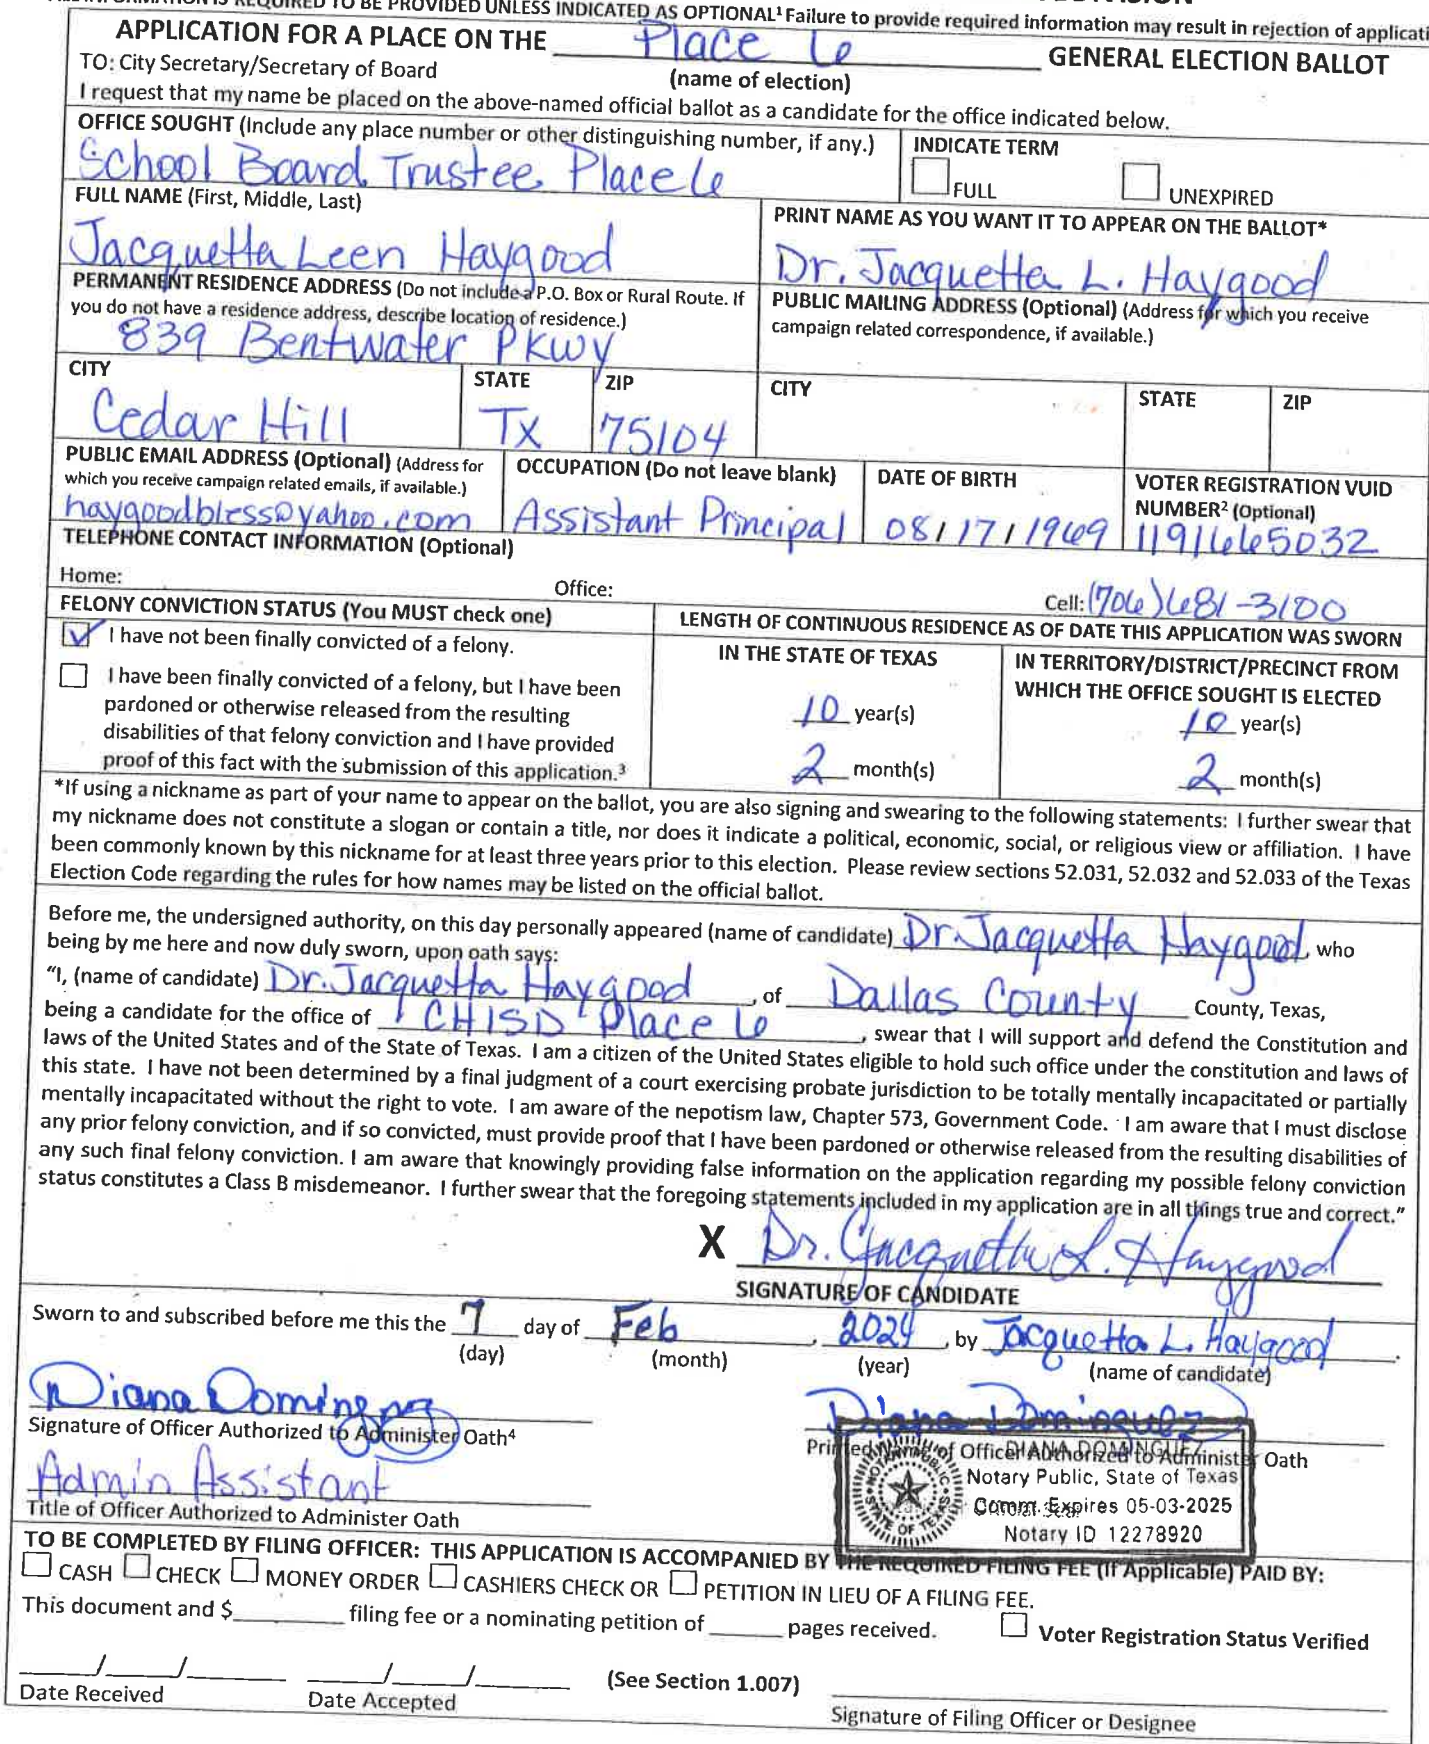 ALL INFORMATION IS REQUIRED TO BE PROVIDED UNLESS INDICATED AS OPTIONAL¹ Failure to provide required information may result in rejection of applicati
APPLICATION FOR A PLACE ON THE Place 6 GENERAL ELECTION BALLOT
(name of election)
TO: City Secretary/Secretary of Board
I request that my name be placed on the above-named official ballot as a candidate for the office indicated below.
OFFICE SOUGHT (Include any place number or other distinguishing number, if any.)
School Board Trustee Place 6
INDICATE TERM
FULL UNEXPIRED
FULL NAME (First, Middle, Last)
Jacquetta Leen Haygood
PRINT NAME AS YOU WANT IT TO APPEAR ON THE BALLOT*
Dr. Jacquetta L. Haygood
PERMANENT RESIDENCE ADDRESS (Do not include a P.O. Box or Rural Route. If
you do not have a residence address, describe location of residence.)
839 Bentwater Pkwy
PUBLIC MAILING ADDRESS (Optional) (Address for which you receive
campaign related correspondence, if available.)
CITY STATE ZIP CITY STATE ZIP
Cedar Hill Tx 75104
PUBLIC EMAIL ADDRESS (Optional) (Address for
which you receive campaign related emails, if available.)
haygoodbless@yahoo.com
OCCUPATION (Do not leave blank)
Assistant Principal
DATE OF BIRTH
08/17/1969
VOTER REGISTRATION VUID
NUMBER² (Optional)
1191665032
TELEPHONE CONTACT INFORMATION (Optional)
Home: Office: Cell: (706) 681-3100
FELONY CONVICTION STATUS (You MUST check one)
I have not been finally convicted of a felony.
I have been finally convicted of a felony, but I have been
pardoned or otherwise released from the resulting
disabilities of that felony conviction and I have provided
proof of this fact with the submission of this application.³
LENGTH OF CONTINUOUS RESIDENCE AS OF DATE THIS APPLICATION WAS SWORN
IN THE STATE OF TEXAS
10 year(s)
2 month(s)
IN TERRITORY/DISTRICT/PRECINCT FROM
WHICH THE OFFICE SOUGHT IS ELECTED
10 year(s)
2 month(s)
*If using a nickname as part of your name to appear on the ballot, you are also signing and swearing to the following statements: I further swear that
my nickname does not constitute a slogan or contain a title, nor does it indicate a political, economic, social, or religious view or affiliation. I have
been commonly known by this nickname for at least three years prior to this election. Please review sections 52.031, 52.032 and 52.033 of the Texas
Election Code regarding the rules for how names may be listed on the official ballot.
Before me, the undersigned authority, on this day personally appeared (name of candidate) Dr. Jacquetta Haygood, who
being by me here and now duly sworn, upon oath says:
"I, (name of candidate) Dr. Jacquetta Haygood, of Dallas County County, Texas,
being a candidate for the office of CHISD Place 6, swear that I will support and defend the Constitution and
laws of the United States and of the State of Texas. I am a citizen of the United States eligible to hold such office under the constitution and laws of
this state. I have not been determined by a final judgment of a court exercising probate jurisdiction to be totally mentally incapacitated or partially
mentally incapacitated without the right to vote. I am aware of the nepotism law, Chapter 573, Government Code. I am aware that I must disclose
any prior felony conviction, and if so convicted, must provide proof that I have been pardoned or otherwise released from the resulting disabilities of
any such final felony conviction. I am aware that knowingly providing false information on the application regarding my possible felony conviction
status constitutes a Class B misdemeanor. I further swear that the foregoing statements included in my application are in all things true and correct."
X Dr. Jacquetta L. Haygood
SIGNATURE OF CANDIDATE
Sworn to and subscribed before me this the 7 day of Feb, 2024, by Jacquetta L. Haygood.
(day) (month) (year) (name of candidate)
Diana Dominguez
Signature of Officer Authorized to Administer Oath⁴
Diana Dominguez
Printed Name of Officer Authorized to Administer Oath
DIANA DOMINGUEZ
Notary Public, State of Texas
Comm. Expires 05-03-2025
Notary ID 12278920
NOTARY PUBLIC
STATE OF TEXAS
Admin Assistant
Title of Officer Authorized to Administer Oath
TO BE COMPLETED BY FILING OFFICER: THIS APPLICATION IS ACCOMPANIED BY THE REQUIRED FILING FEE (If Applicable) PAID BY:
CASH CHECK MONEY ORDER CASHIERS CHECK OR PETITION IN LIEU OF A FILING FEE.
This document and $________ filing fee or a nominating petition of ______ pages received. Voter Registration Status Verified
____/____/____ ____/____/____ (See Section 1.007)
Date Received Date Accepted Signature of Filing Officer or Designee